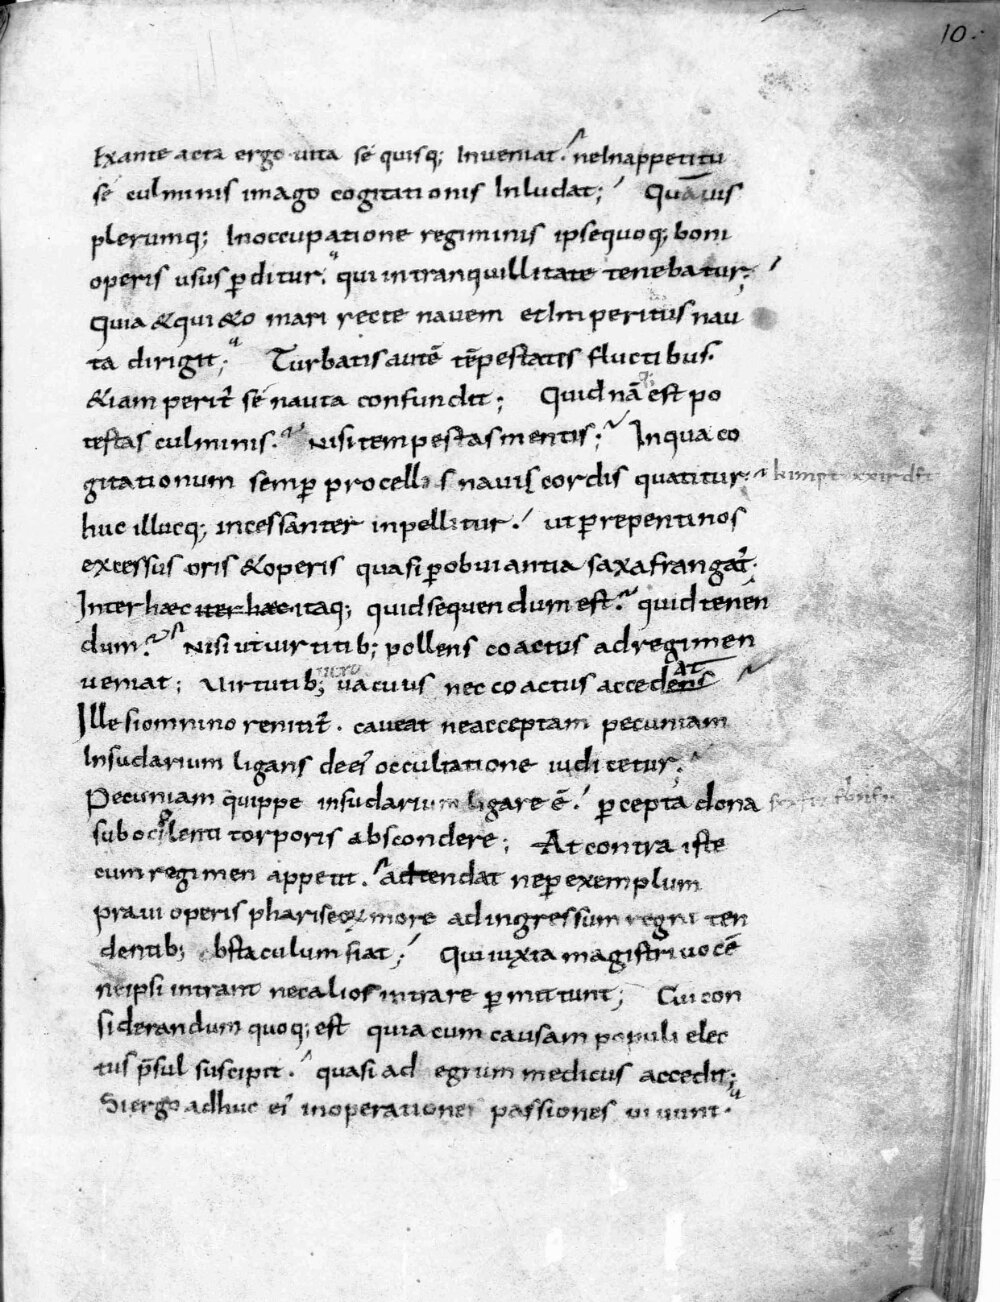 10.
Exante acta ergo uita sé quisq; Inueniat. neInappetitu
sé culminis imago cogitationis Inludat; Quāuis
plerumq; Inoccupatione regiminis ipsequoq; boni
operis usus ꝑditur. qui intranquillitate tenebatur;
Quia &qui&o mari recte nauem etImperitus nau
ta dirigit; Turbatis autē tēpestatis fluctibus.
&iam perit᷒ sé nauta confundit; Quid nā est po
testas culminis. Nisi tempestas mentis; Inqua co
gitationum semꝑ procellis nauis cordis quatitur.
huc illucq; incessanter inpellitur. ut ꝑrepentinos
excessus oris &operis quasi ꝑobuiantia saxa frangat᷒.
Inter haec iter haec itaq; quid sequendum est. quid tenen
dum. Nisi ut uirtutib; pollens coactus adregimen
ueniat; Uirtutib; uero uacuus nec coactus accedens at
Ille siomnino renitit᷒. caueat neacceptam pecuniam
Insudarium ligans deei᷒ occultatione iudicetur.
Pecuniam quippe insudarium ligare ē. ꝑcepta dona
sub ocio lenti torporis abscondere; At contra iste
cum regimen appetit. adtendat neꝑ exemplum
praui operis phariseorum more adingressum regni ten
dentib; obstaculum fiat; Qui iuxta magistri uocē
neipsi intrant nec alios intrare ꝑmittunt; Cui con
siderandum quoq; est quia cum causam populi elec
tus p̄sul suscipit. quasi ad egrum medicus accedit;
Siergo adhuc ei᷒ inoperatione passiones uiuunt.